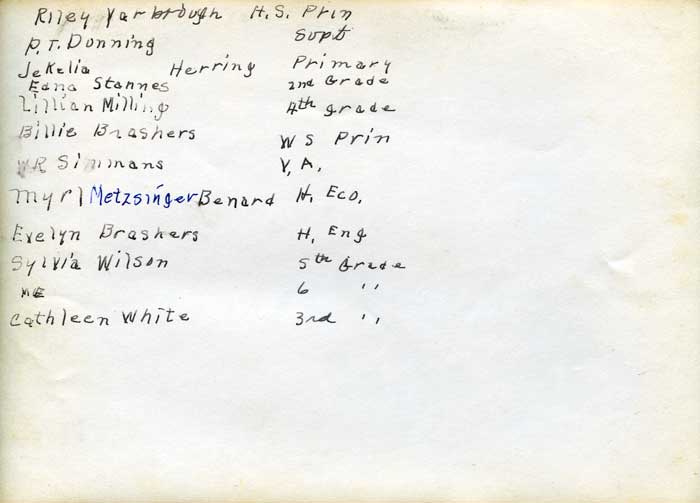 Riley Yarbrough H.S. Prin
P.T. Donning Supt
Jekelia Herring Primary
Edna Stannes 2nd Grade
Lillian Milling 4th grade
Billie Brashers W S Prin
WR Simmans V.A.
Myrl Metzsinger Benard H. Eco.
Evelyn Brashers H. Eng
Sylvia Wilson 5th Grade
ME 6 ''
Cathleen White 3rd ''